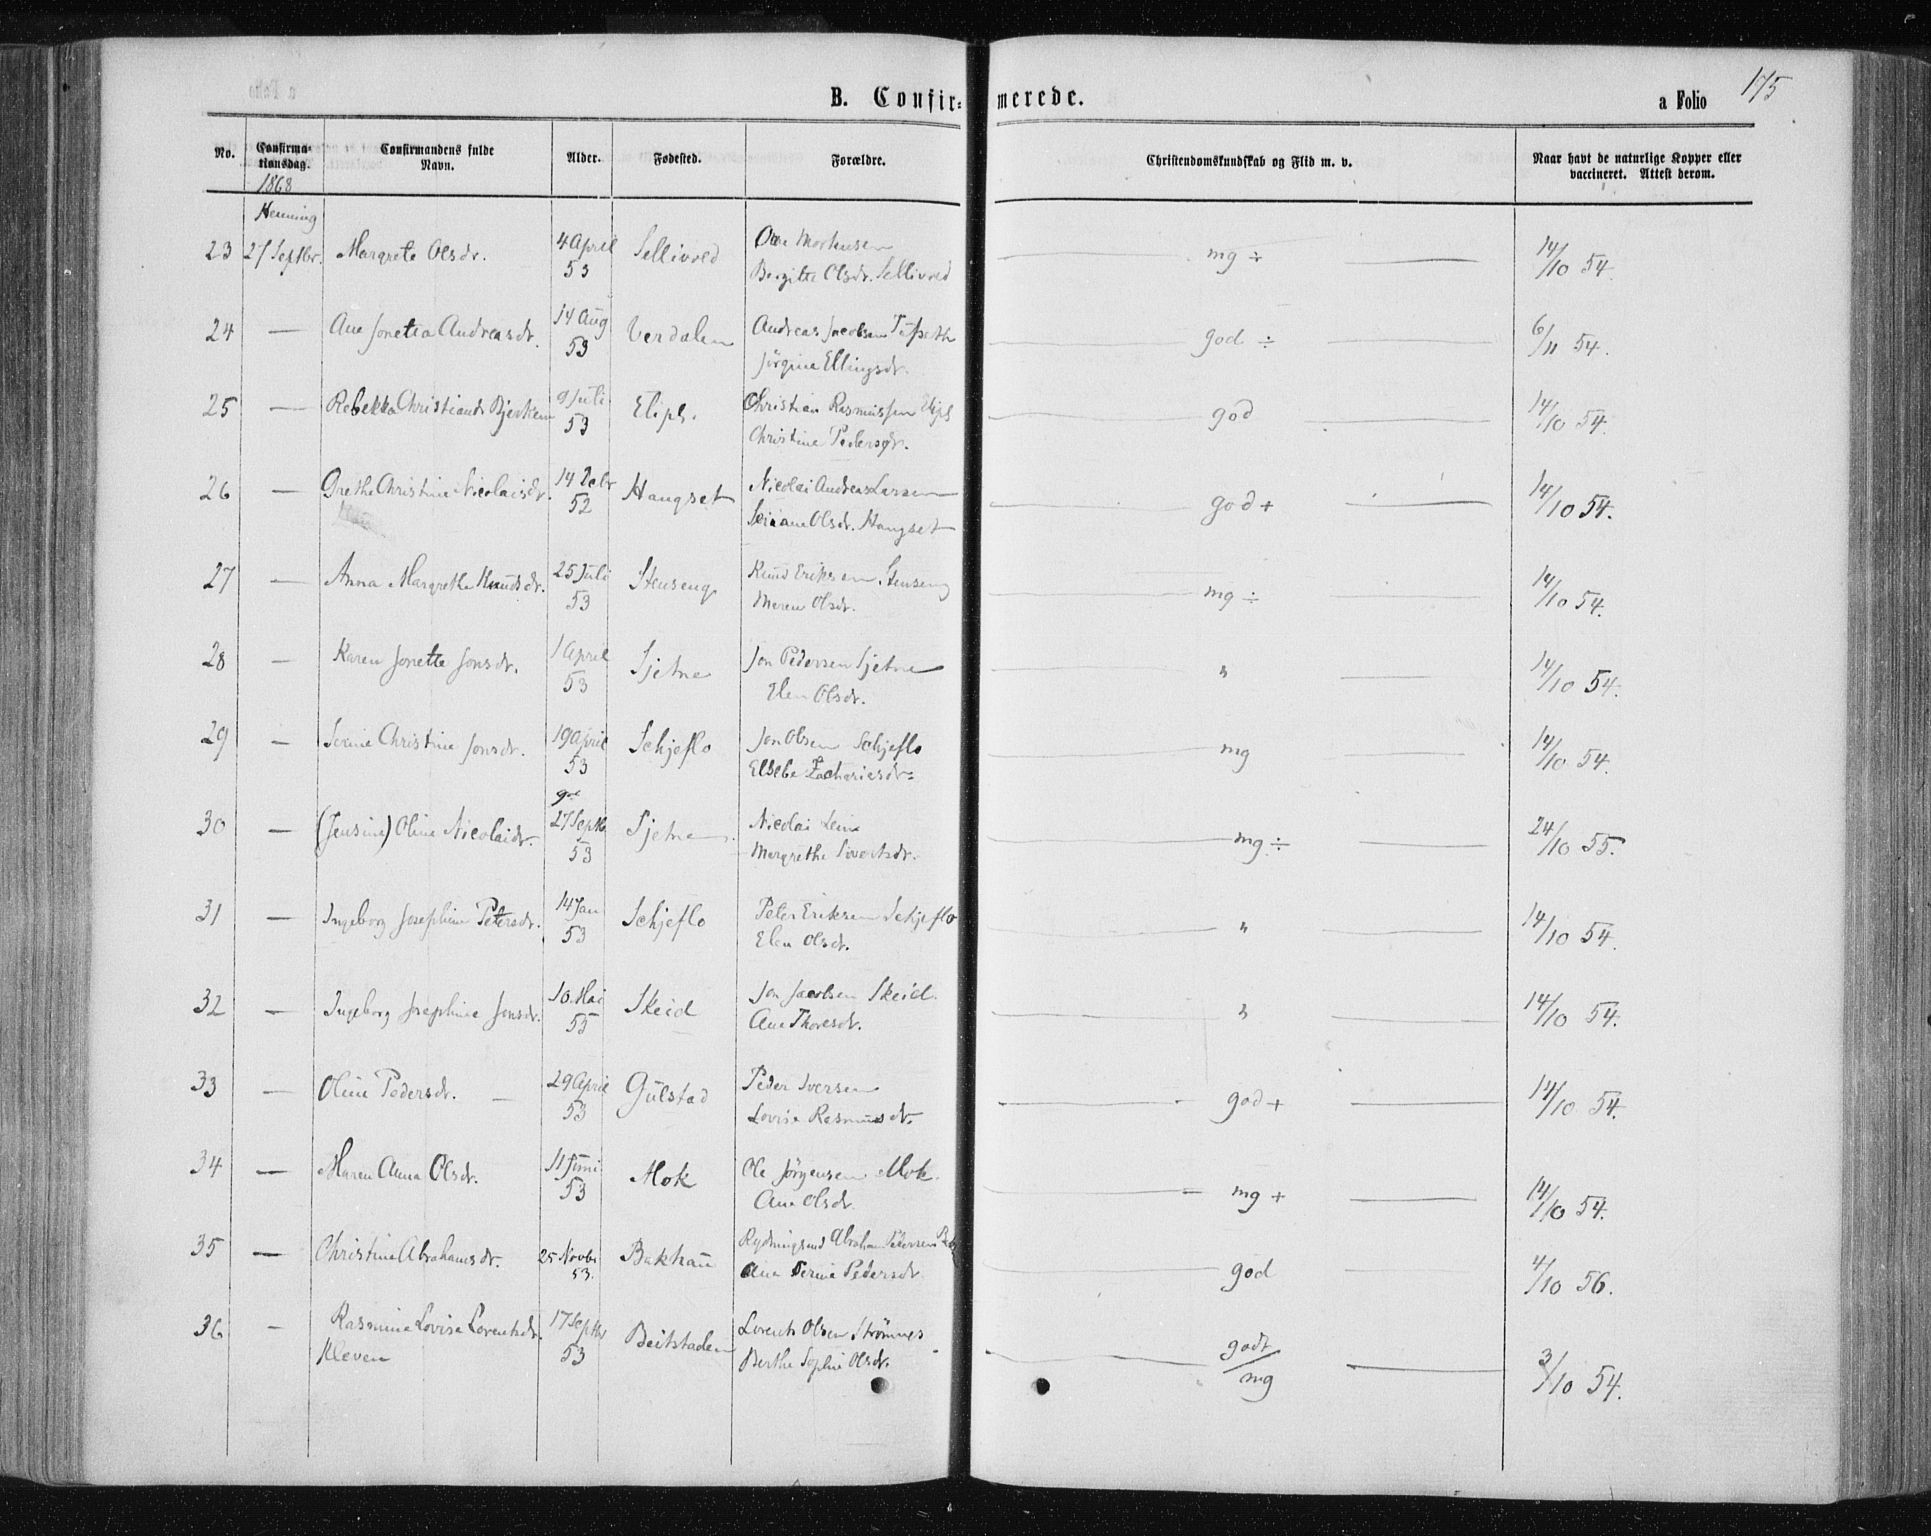 175
B. Confir= merede.
a Folio
No.
Confirma-
tionsdag.
Confirmandens fulde
Navn.
Alder.
Fødested.
Forældre.
Christendomskundskab og Flid m. v.
Naar havt de naturlige Kopper eller
vaccineret. Attest derom.
1868
Henning
23 27 Septbr. Margrete Olsdr. 4 April Sellivold Ole Mortensen mg ÷ 14/10 54.
53 Bergitte Olsdr. Sellivold
24 — Ane Jonetta Andreasdr. 14 Aug Verdalen Andreas Jacobsen god ÷ 6/11 54.
53 Jørgine Ellingsdr.
25 — Rebekka Christiansdr Bjerkem 9 Juli Christian Rasmussen god 14/10 54.
53 Christine Pedersdr.
26 — Grethe Christine Nicolaisdr. 14 Debr Haugset Nicolai Andreas Larsen god + 14/10 54.
52 Olsdr. Haugset
27 — Anna Margrethe Knudsdr. 25 Juli Stenseng Knud Eriksen Stenseng mg ÷ 14/10 54.
53 Maren Olsdr.
28 — Karen Jonette Jonsdr. 1 April Sjetne Jon Pedersen Sjetne " 14/10 54.
53 Elen Olsdr.
29 — Serine Christine Jonsdr. 19 April Schjeflo Jon Olsen Schjeflo mg 14/10 54.
53 Elsebe Zachariasdr=
30 — (Jensine) Oline Nicolaidr. 27 Septb Sjetne Nicolai Lein mg ÷ 24/10 55.
53 Margrethe Sivertsdr.
31 — Ingeborg Josephine Petersdr. 14 Jan Schjeflo Peter Eriksen Schjeflo " 14/10 54.
53 Elen Olsdr.
32 — Ingeborg Josephine Jonsdr. 10 Mai Skeid Jon Jacobsen Skeid. " 14/10 54.
53 Ane Thoresdr.
33 — Oline Pedersdr. — 29 April Gulstad Peder Iversen god + 14/10 54.
53 Lovise Rasmusdr.
34 — Maren Anna Olsdr. 11 Juni Mok Ole Jörgensen Mok. mg + 14/10 54.
53 Ane Olsdr.
35 — Christine Abrahamsdr. 25 Novbr Bakhau Rydningsmd Abraham Petersen god 4/10 56.
53. Ane Serine Pedersdr.
36 — Rasmine Lovise Lorentsdr. 17 Septbr Beitstaden Lorents Olsen Strömnes godt/mg 3/10 54.
Kleven 53 Berthe Sophie Olsdr.